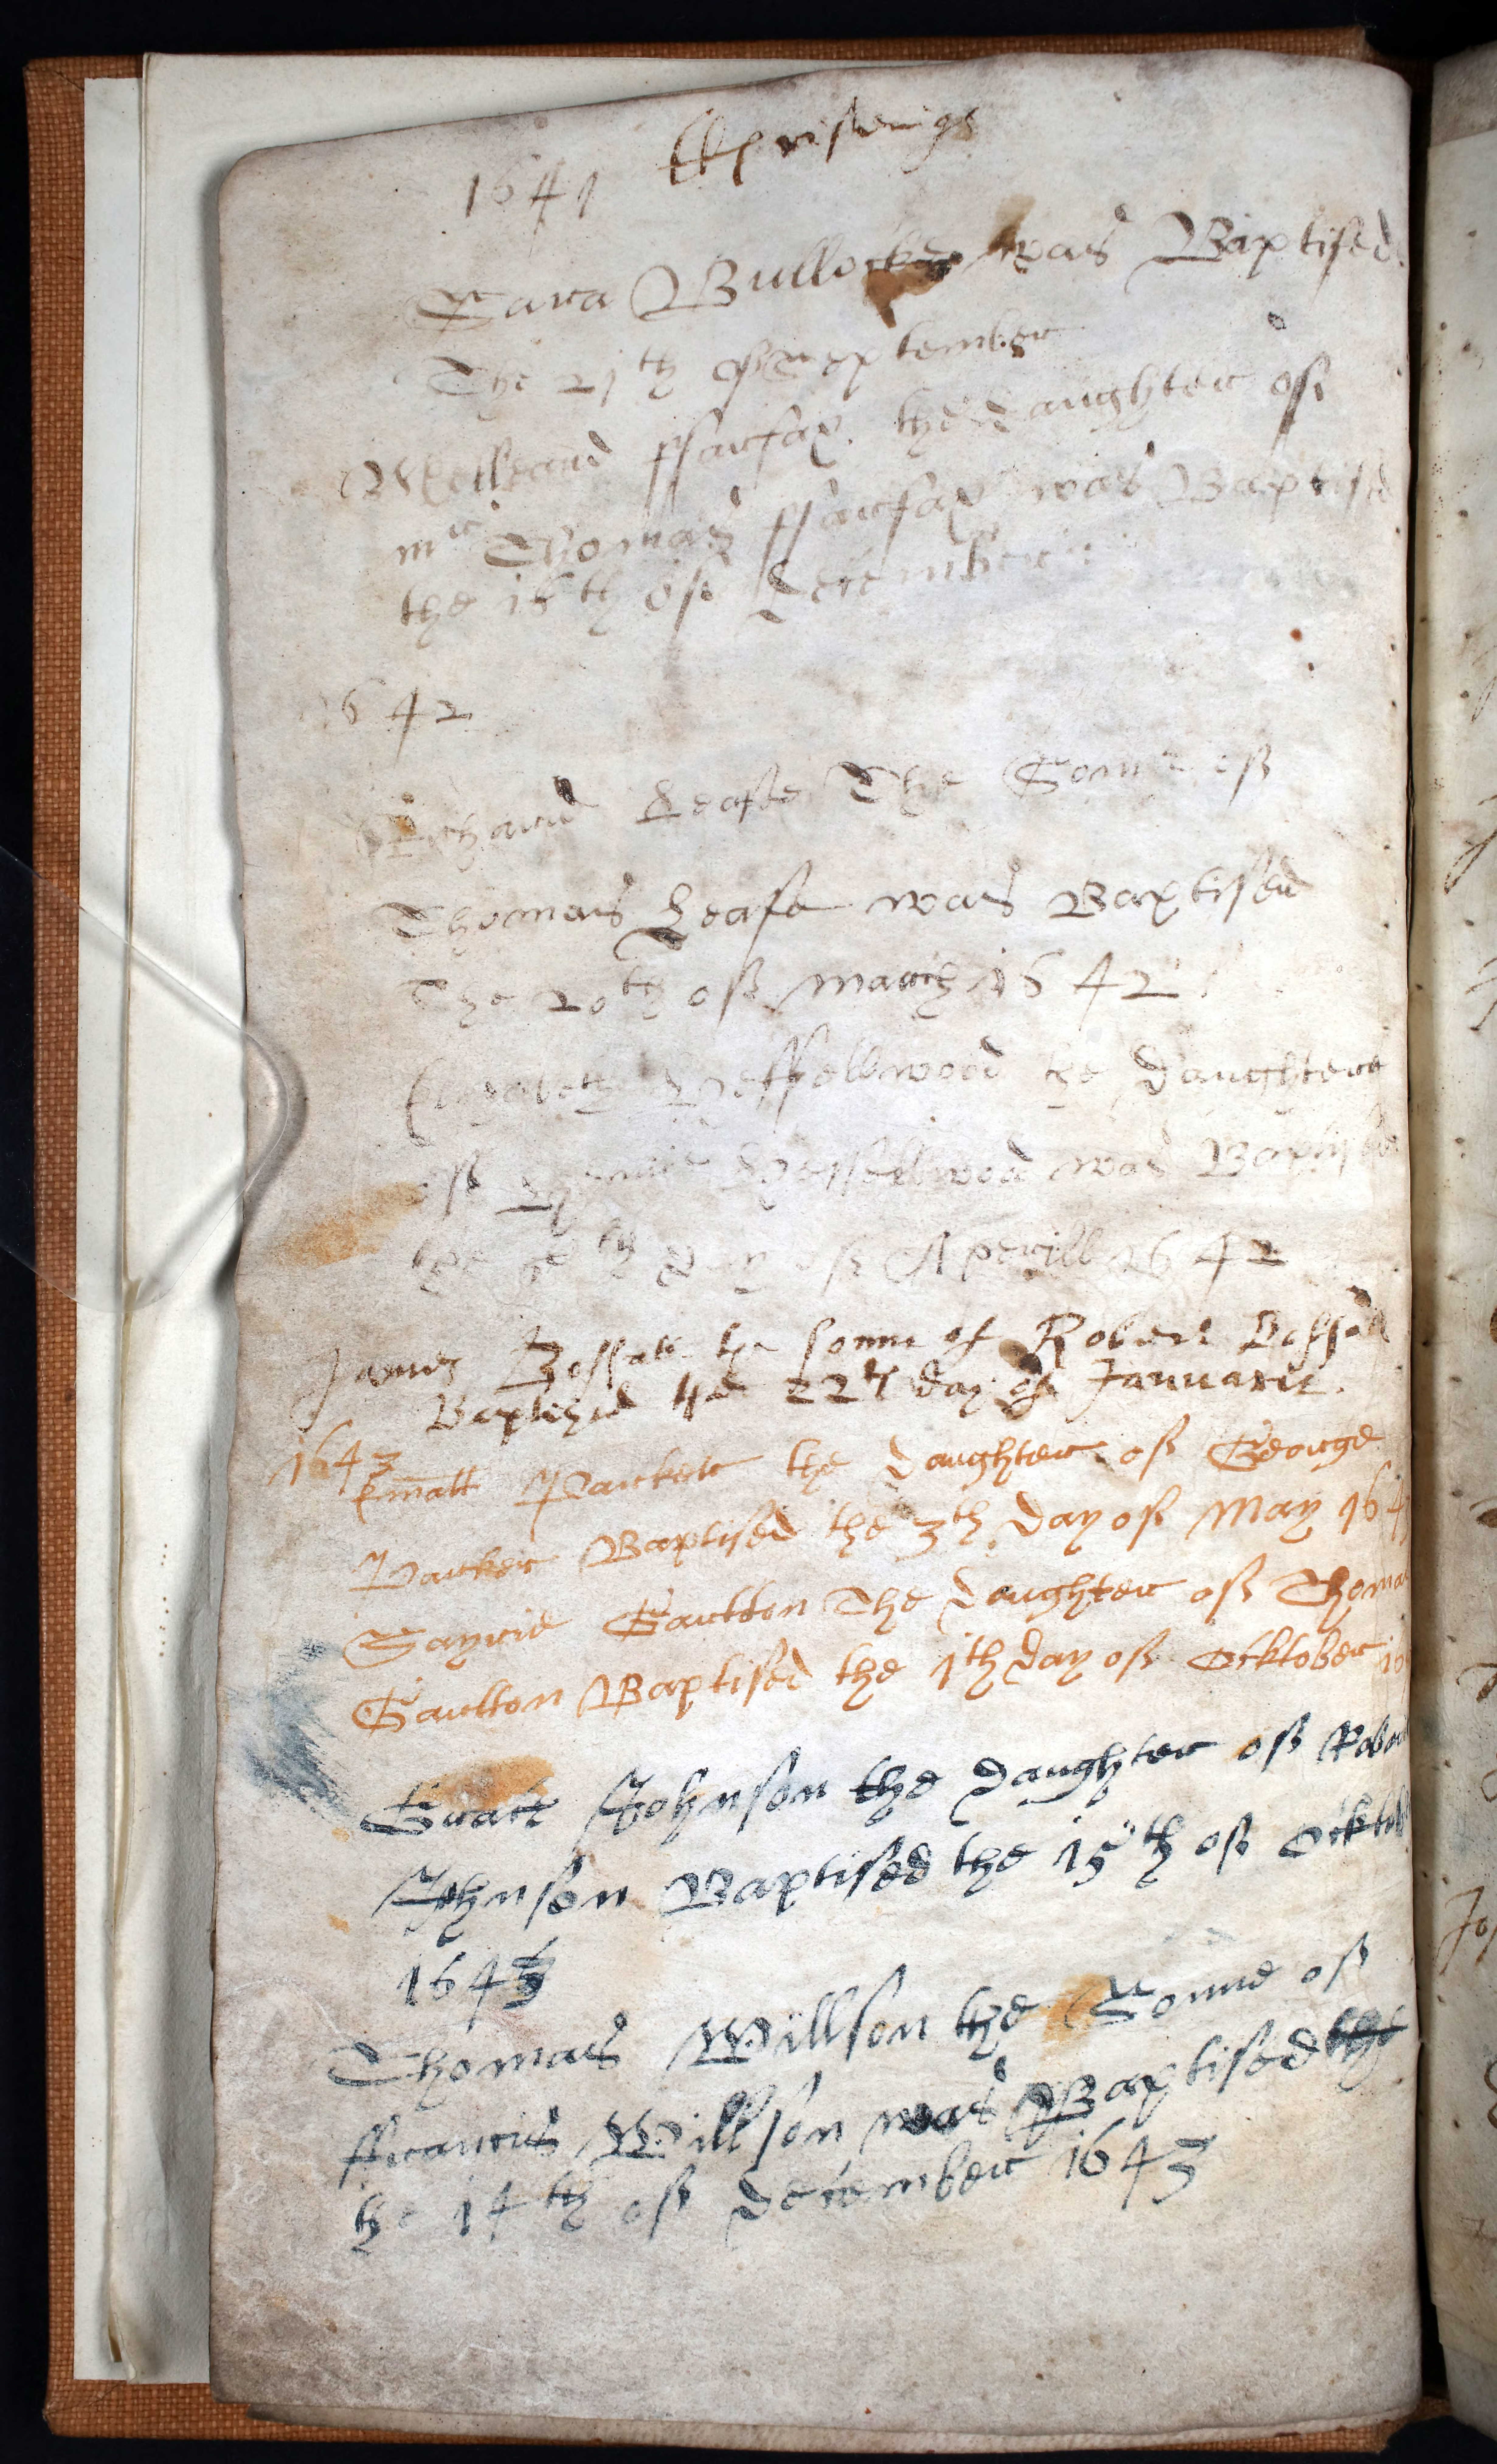 1641
Sara Bullocke was Baptised
The 21th of September
ffairfax the daughter off
mr Thomas ffairfax was Baptised
the 16th off December
1642
Richard Lease The Sonne off
Thomas Lease was Baptised
The 20th off march 1642
Elizabeth Hessellwood the daughter
off Hessellwood was Baptised
the th day off Aperill 1642
James Bossall the sonne of Robert Bossall
Baptized the 22th day of Januarie.
1643
Parker the daughter off George
Parker Baptised the 3th day off May 164
Gartton The daughter off Thomas
Gartton Baptised the 1th day off Ocktober 16
Grace Johnson the daughter off Robert
Johnson Baptised the 15th off Ocktob
1643
Thomas Willson the Sonne off
ffrancis Willson was Baptised the
the 14th off december 1643